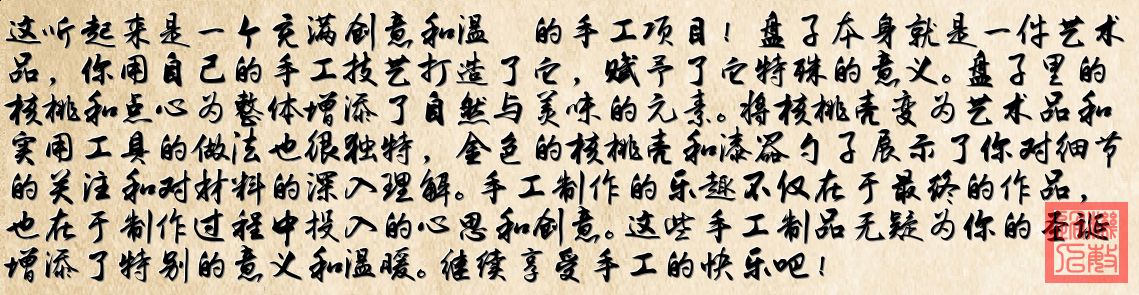 这听起来是一个充满创意和温 的手工项目！盘子本身就是一件艺术
品，你用自己的手工技艺打造了它，赋予了它特殊的意义。盘子里的
核桃和点心为整体增添了自然与美味的元素。将核桃壳变为艺术品和
实用工具的做法也很独特，金色的核桃壳和漆器勺子展示了你对细节
的关注和对材料的深入理解。手工制作的乐趣不仅在于最终的作品，
也在于制作过程中投入的心思和创意。这些手工制品无疑为你的圣诞
增添了特别的意义和温暖。继续享受手工的快乐吧！